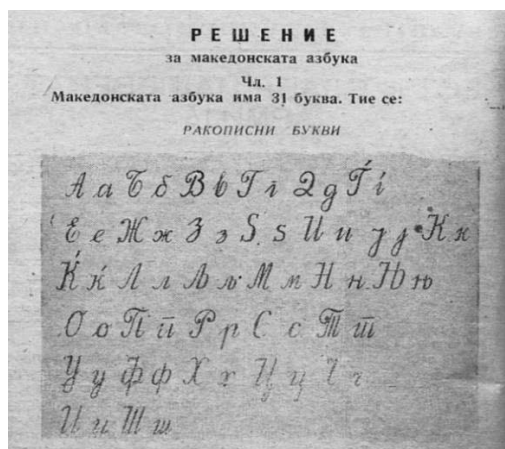 РЕШЕНИЕ
за македонската азбука
Чл. 1
Македонската азбука има 31 буква. Тие се:
РАКОПИСНИ БУКВИ
А а Б б В в Г г Д д Ѓ ѓ
Е е Ж ж З з Ѕ ѕ И и Ј ј К к
Ќ ќ Л л Љ љ М м Н н Њ њ
О о П п Р р С с Т т
У у Ф ф Х х Ц ц Ч ч
Џ џ Ш ш